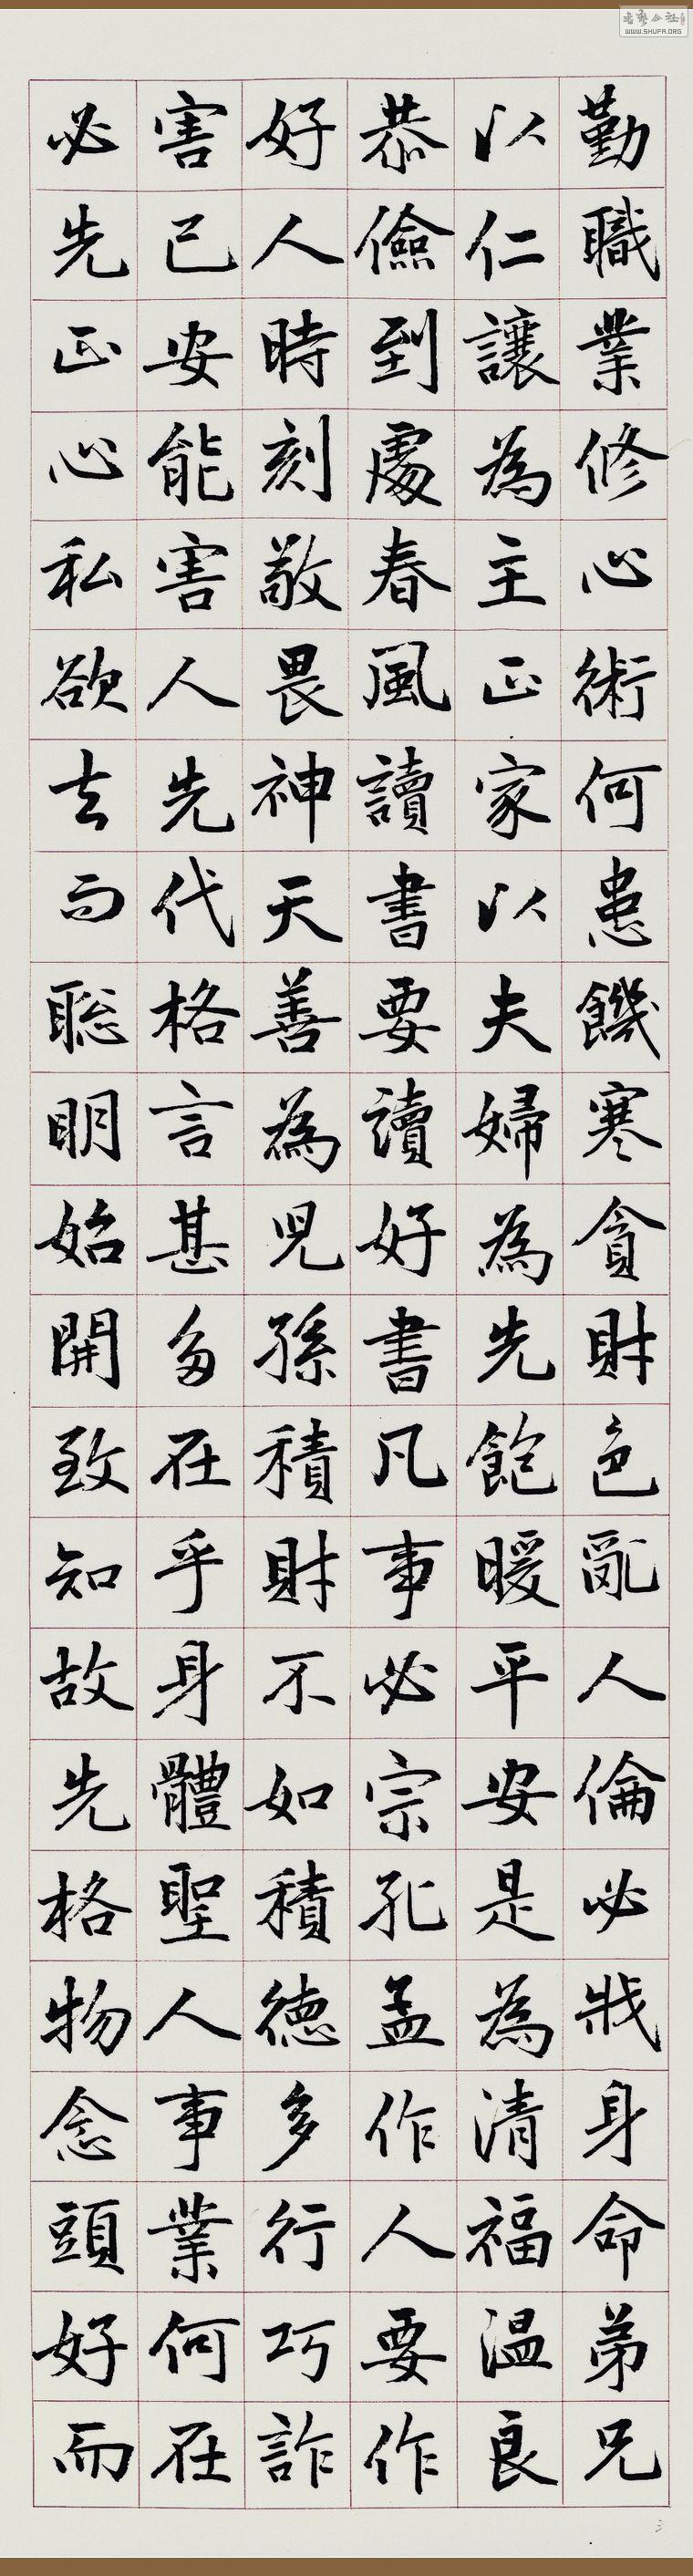 勤職業修心術何患饑寒貪財色亂人倫必戕身命弟兄
以仁讓為主正家以夫婦為先飽暖平安是為清福溫良
恭儉到處春風讀書要讀好書凡事必宗孔孟作人要作
好人時刻敬畏神天善為兒孫積財不如積德多行巧詐
害己安能害人先代格言甚多在乎身體聖人事業何在
必先正心私欲去而聰明始開致知故先格物念頭好而
WWW.SHUFA.ORG